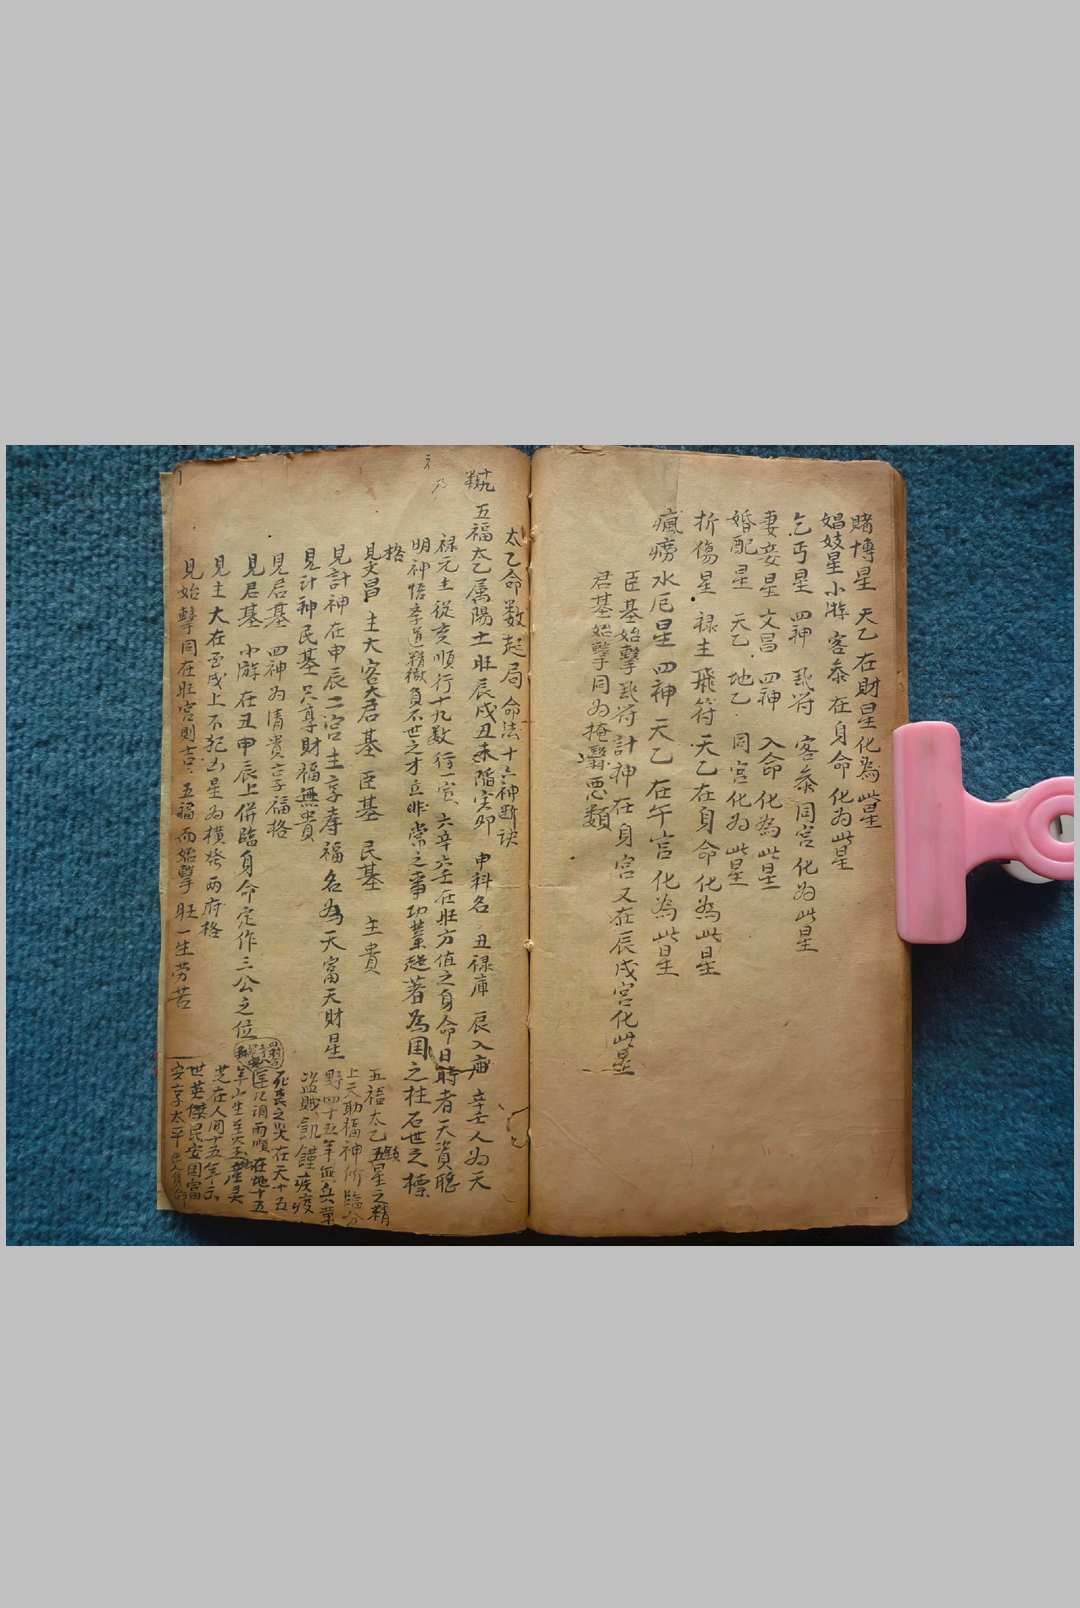 賭博星 天乙在財星化為此星
娼妓星 小游 客叅 在身命 化为此星
乞丐星 四神 飛符 客叅同宮 化为此星
妻妾星 文昌 四神 入命化為此星
婚配星 天乙 地乙 同宮化为此星
折傷星 禄主飛符 天乙在身命化為此星
瘋癆水厄星 四神天乙 在午宮化為此星
臣基始擊飛符計神在身宮又在辰戌宮化此星
君基始擊同为掩翳惡類
太乙命数起局 命法十六神斷訣
五福太乙属陽土旺辰戌丑未陷寅卯 申科名 丑禄庫 辰入廟 辛壬人为天
禄元主從亥順行十九数 行一宮 六辛六壬在旺方值之身命日時者天資聪
明神悟李道精微負不世之才立非常之事功業超著為国之柱石世之標
格
見文昌 主大客大君基 臣基 民基 主貴
見計神在申辰二宮主享寿福名為天富天財星
見計神民基只享財福無貴
見臣基 四神为清貴言享福格
見君基 小游在丑申辰上併臨身命定作三公之位
見主大在酉戌上不犯凶星为横格两府格
見始擊同在旺宮則吉 五福而始擊旺一生労苦
五福太乙 五星之精
上天助福神所臨分
野四十五年無兵革
盜賊飢饉疾疫
死喪之災在天十五
年風调雨順在地十五
年山生至玉產灵
芝在人间十五年出
世英傑民安国富
安享太平